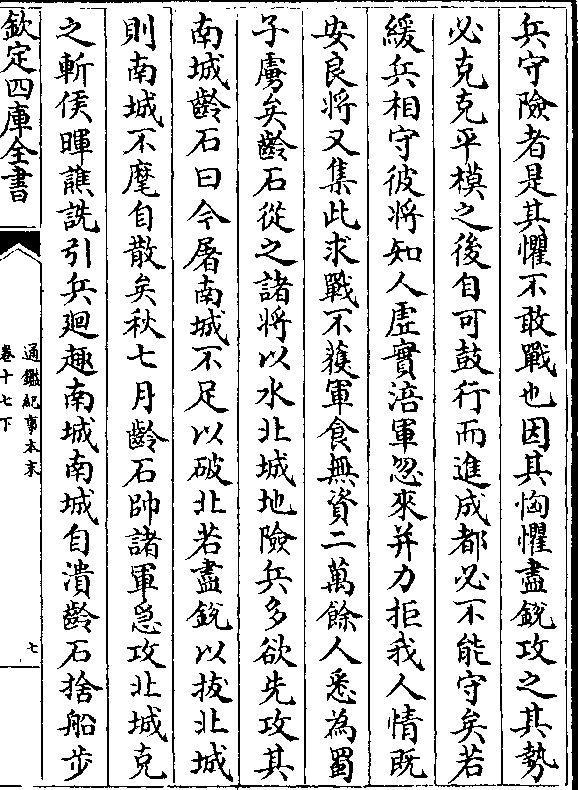 兵守險者是其懼不敢戰也因其恟懼盡銳攻之其勢
必克克平模之後自可鼓行而進成都必不能守矣若
緩兵相守彼將知人虛實涪軍忽來并力拒我人情既
安良將又集此求戰不獲軍食無資二萬餘人悉為蜀
子虜矣齡石從之諸將以水北城地險兵多欲先攻其
南城齡石曰今屠南城不足以破北若盡銳以拔北城
則南城不麾自散矣秋七月齡石帥諸軍急攻北城克
之斬侯暉譙詵引兵廻趣南城南城自潰齡石捨船步
欽定四庫全書
通鑑紀事本末
卷十七下
七